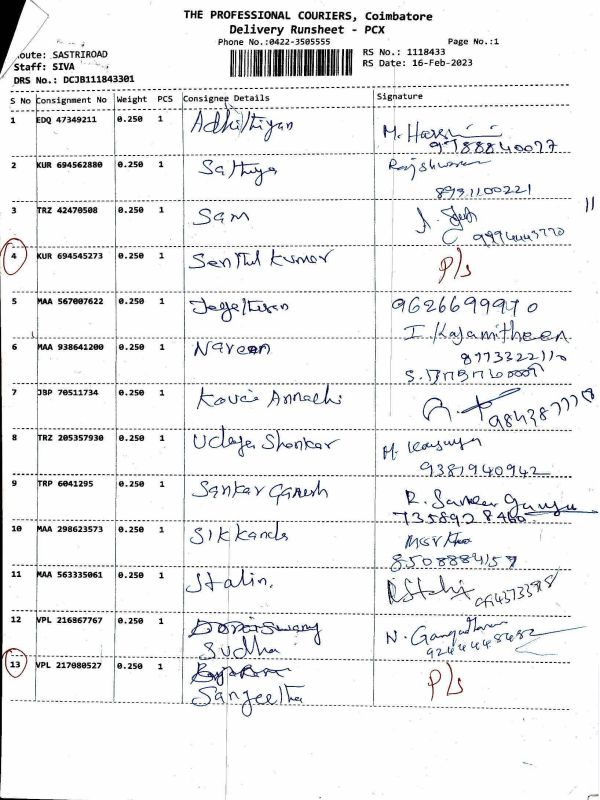 THE PROFESSIONAL COURIERS, Coimbatore
Delivery Runsheet - PCX
Phone No.:0422-3505555
Page No.:1
oute: SASTRIROAD
Staff: SIVA
DRS No.: DCJB111843301
RS No.: 1118433
RS Date: 16-Feb-2023
S No Consignment No Weight PCS Consignee Details Signature
1 EDQ 47349211 0.250 1 Adhithiyan
9788840077
2 KUR 694562880 0.250 1 Sathiya
8931100221
3 TRZ 42470508 0.250 1 Sam
4 KUR 694545273 0.250 1 Senthil Kumar P/s
5 MAA 567007622 0.250 1 9626699970
I. Kajamitheen
6 MAA 938641200 0.250 1 Naveen
8773322110
7 JBP 70511734 0.250 1
8 TRZ 205357930 0.250 1 Udaya Shankar M.
9381940942
9 TRP 6041295 0.250 1 Sankar Ganesh R. Sankar Ganesh
10 MAA 298623573 0.250 1
11 MAA 563335061 0.250 1 Stalin.
12 VPL 216867767 0.250 1
Sudha
13 VPL 217080527 0.250 1 P/s
Sangeetha